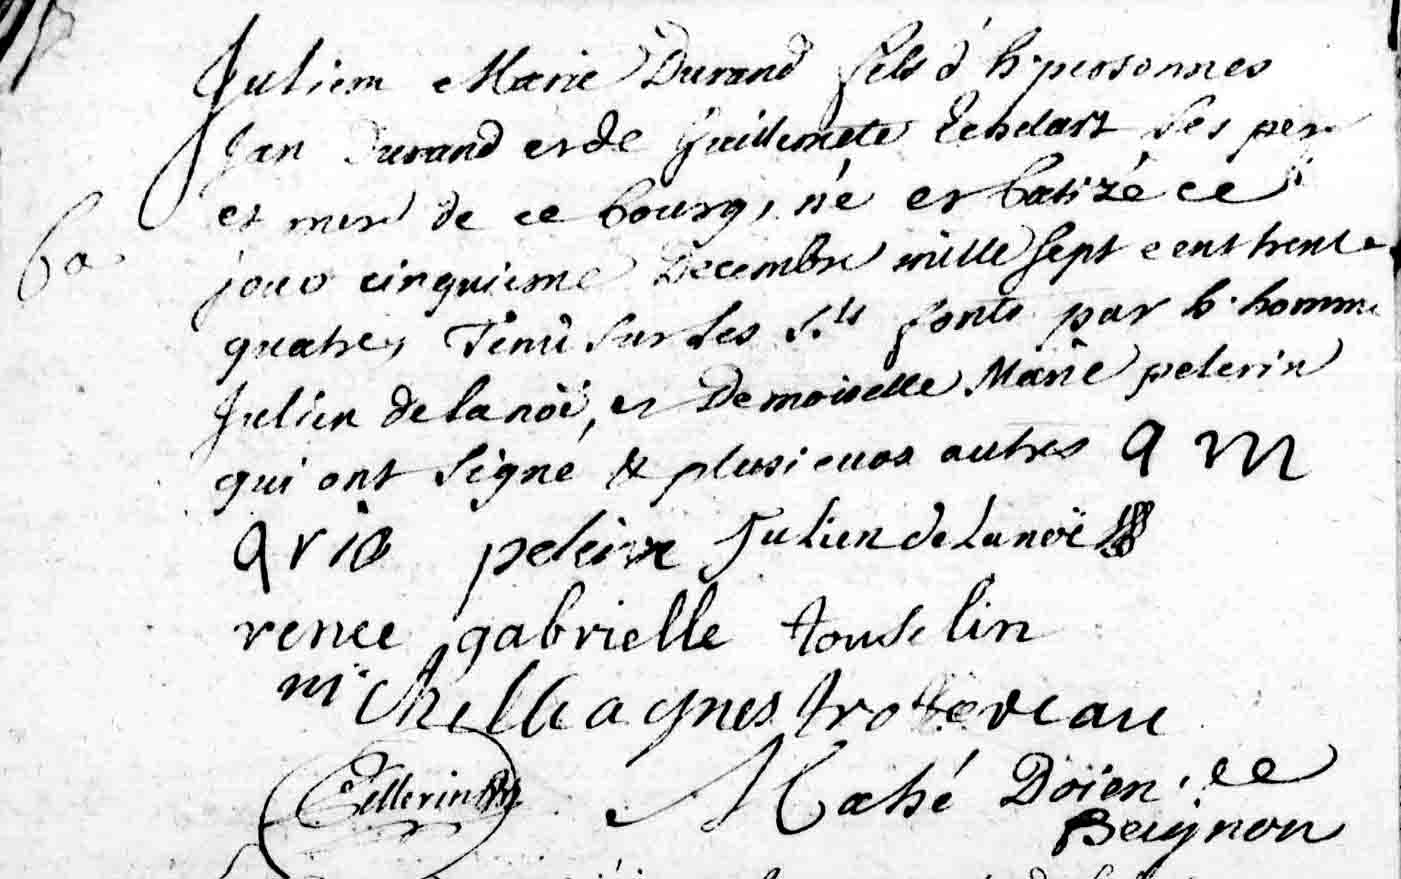 Julien Marie Durand fils d' h. personnes
Jan Durand et de Guillemete Echelart ses per
et mere de ce bourg, né et batizé ce
Ba
jour cinquieme Decembre mille sept cent trente
quatre, Tenu sur les S.ts fonts par h. homme
Julien de la noë, et Demoiselle Marie pelerin
qui ont signé & plusieurs autres a m
arie peleirn Julien de Lanoë
renee gabrielle touselin
michelle agnes trobereau
Pellerin Mahé Doïen, de
Beignon